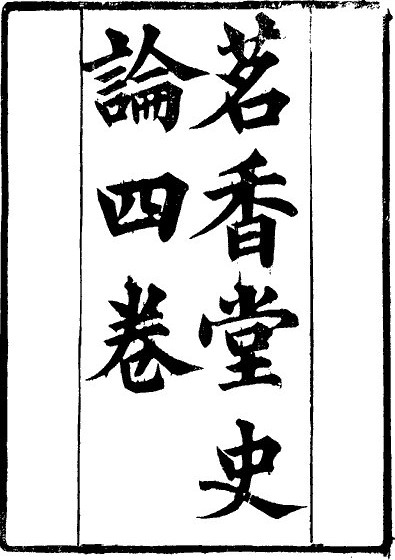 茗香堂史
論四卷